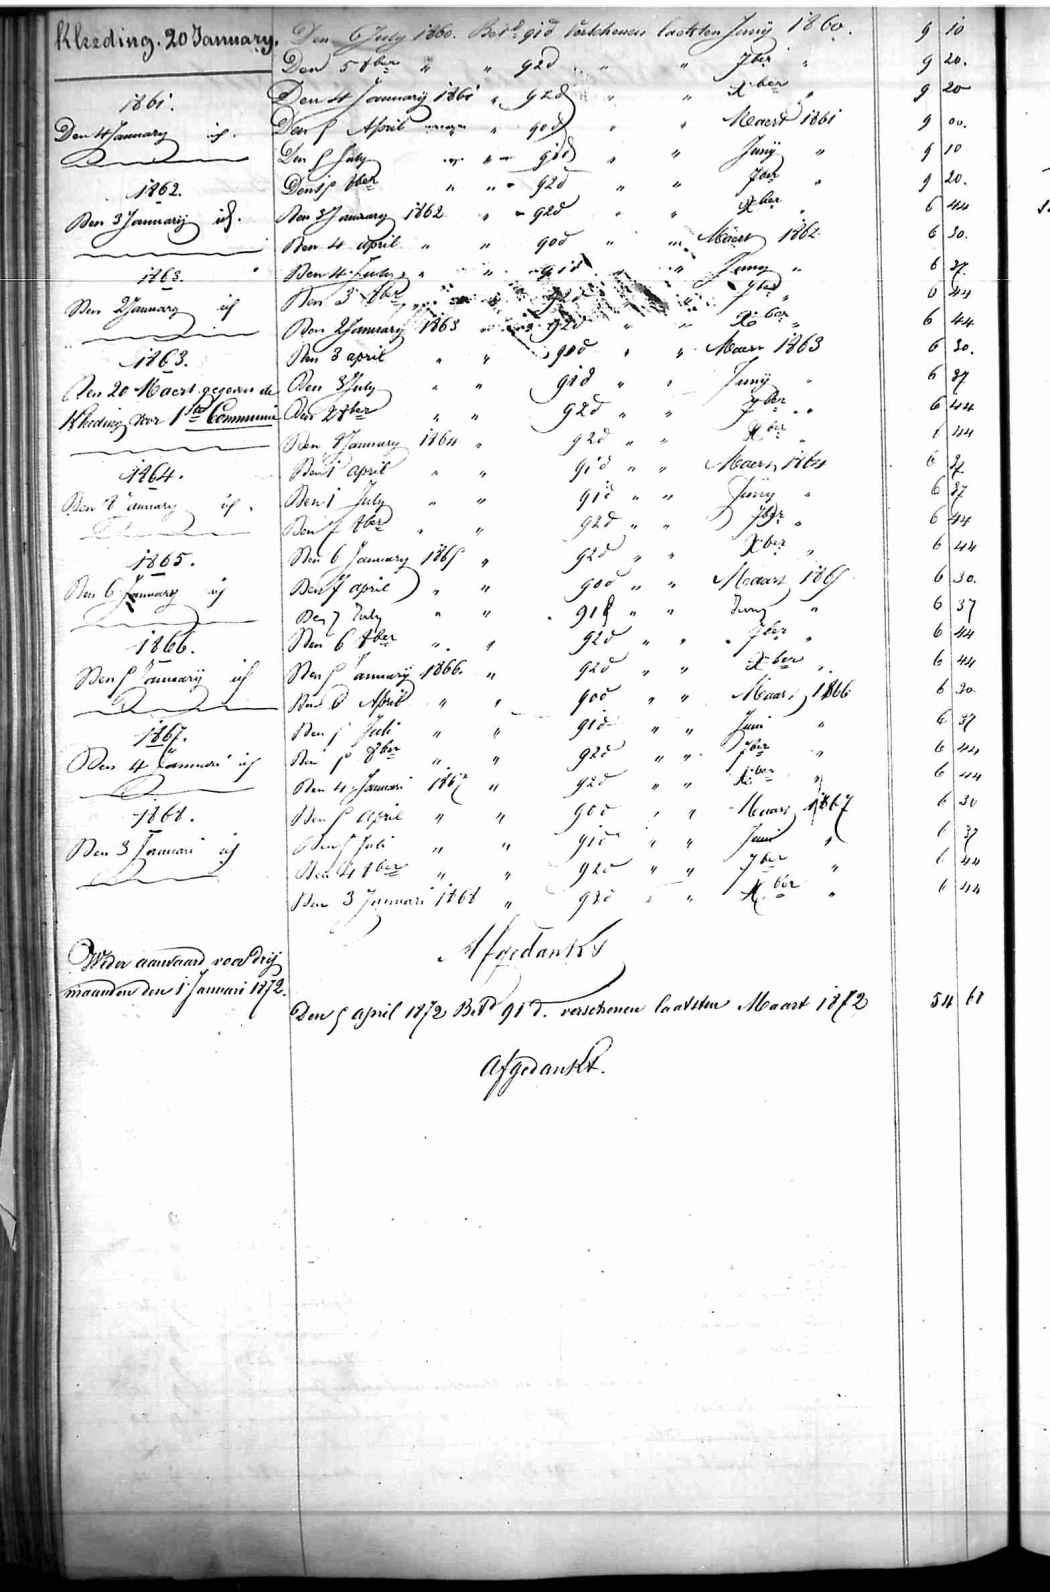 Kleeding. 20 January.
1861.
Den 4 January id.
1862.
Den 3 Januarij id.
1863.
Den 2 January id
1863.
Den 20 Maert gegeven de
Kleeding voor 1ste Communie
1864.
Den 8 January id.
1865.
Den 6 January id
1866.
Den 5 January id
1867.
Den 4 Januari id
1868.
Den 3 Januari id
Weder aanvaard voor drij
maanden den 1 Januari 1872.
Den 6 July 1860. Betd 91d verschenen laetsten Junij 1860. 9 10
Den 5 8ber " " 92d " " 7ber " 9 20.
Den 4 Januarij 1861 " 92d " " Xber " 9 20
Den 5 April " " 90d " " Maert 1861 9 00.
Den 5 July " " 91d " " Junij " 9 10
Den 5 8ber " " 92d " " 7ber " 9 20.
Den 3 January 1862 " " 92d " " Xber " 6 44
Den 4 april " " 90d " " Maert 1862 6 30.
Den 4 July " " 91d " " Juny " 6 37
Den 3 8ber " " 7ber " 6 44
Den 2 January 1863 " " 92d " " Xber " 6 44
Den 3 april " " 90d " " Maert 1863 6 30.
Den 3 July " " 91d " " Junij " 6 37
Den 2 8ber " " 92d " " 7ber " 6 44
Den 8 January 1864 " 92d " " Xber " 6 44
Den 1 april " " 91d " " Maert 1864 6 37
Den 1 July " " 91d " " Junij " 6 37
Den 7 8ber " " 92d " " 7ber " 6 44
Den 6 January 1865 " 92d " " Xber " 6 44
Den 7 april " " 90d " " Maart 1865 6 30.
Den 7 July " " 91d " " Juny " 6 37
Den 6 8ber " " 92d " " 7ber " 6 44
Den 5 January 1866. " 92d " " Xber " 6 44
Den 6 April " " 90d " " Maart 1866 6 30
Den 5 Juli " " 91d " " Juni " 6 37
Den 5 8ber " " 92d " " 7ber " 6 44
Den 4 Januari 1867 " 92d " " Xber " 6 44
Den 5 april " " 90d " " Maart 1867 6 30
Den 5 Juli " " 91d " " Juni " 6 37
Den 4 8ber " " 92d " " 7ber " 6 44
Den 3 Januari 1868 " 92d " " Xber " 6 44
Afgedankt
Den 5 april 1872 Betd 91 d. verschenen laatsten Maart 1872 54 61
Afgedankt.